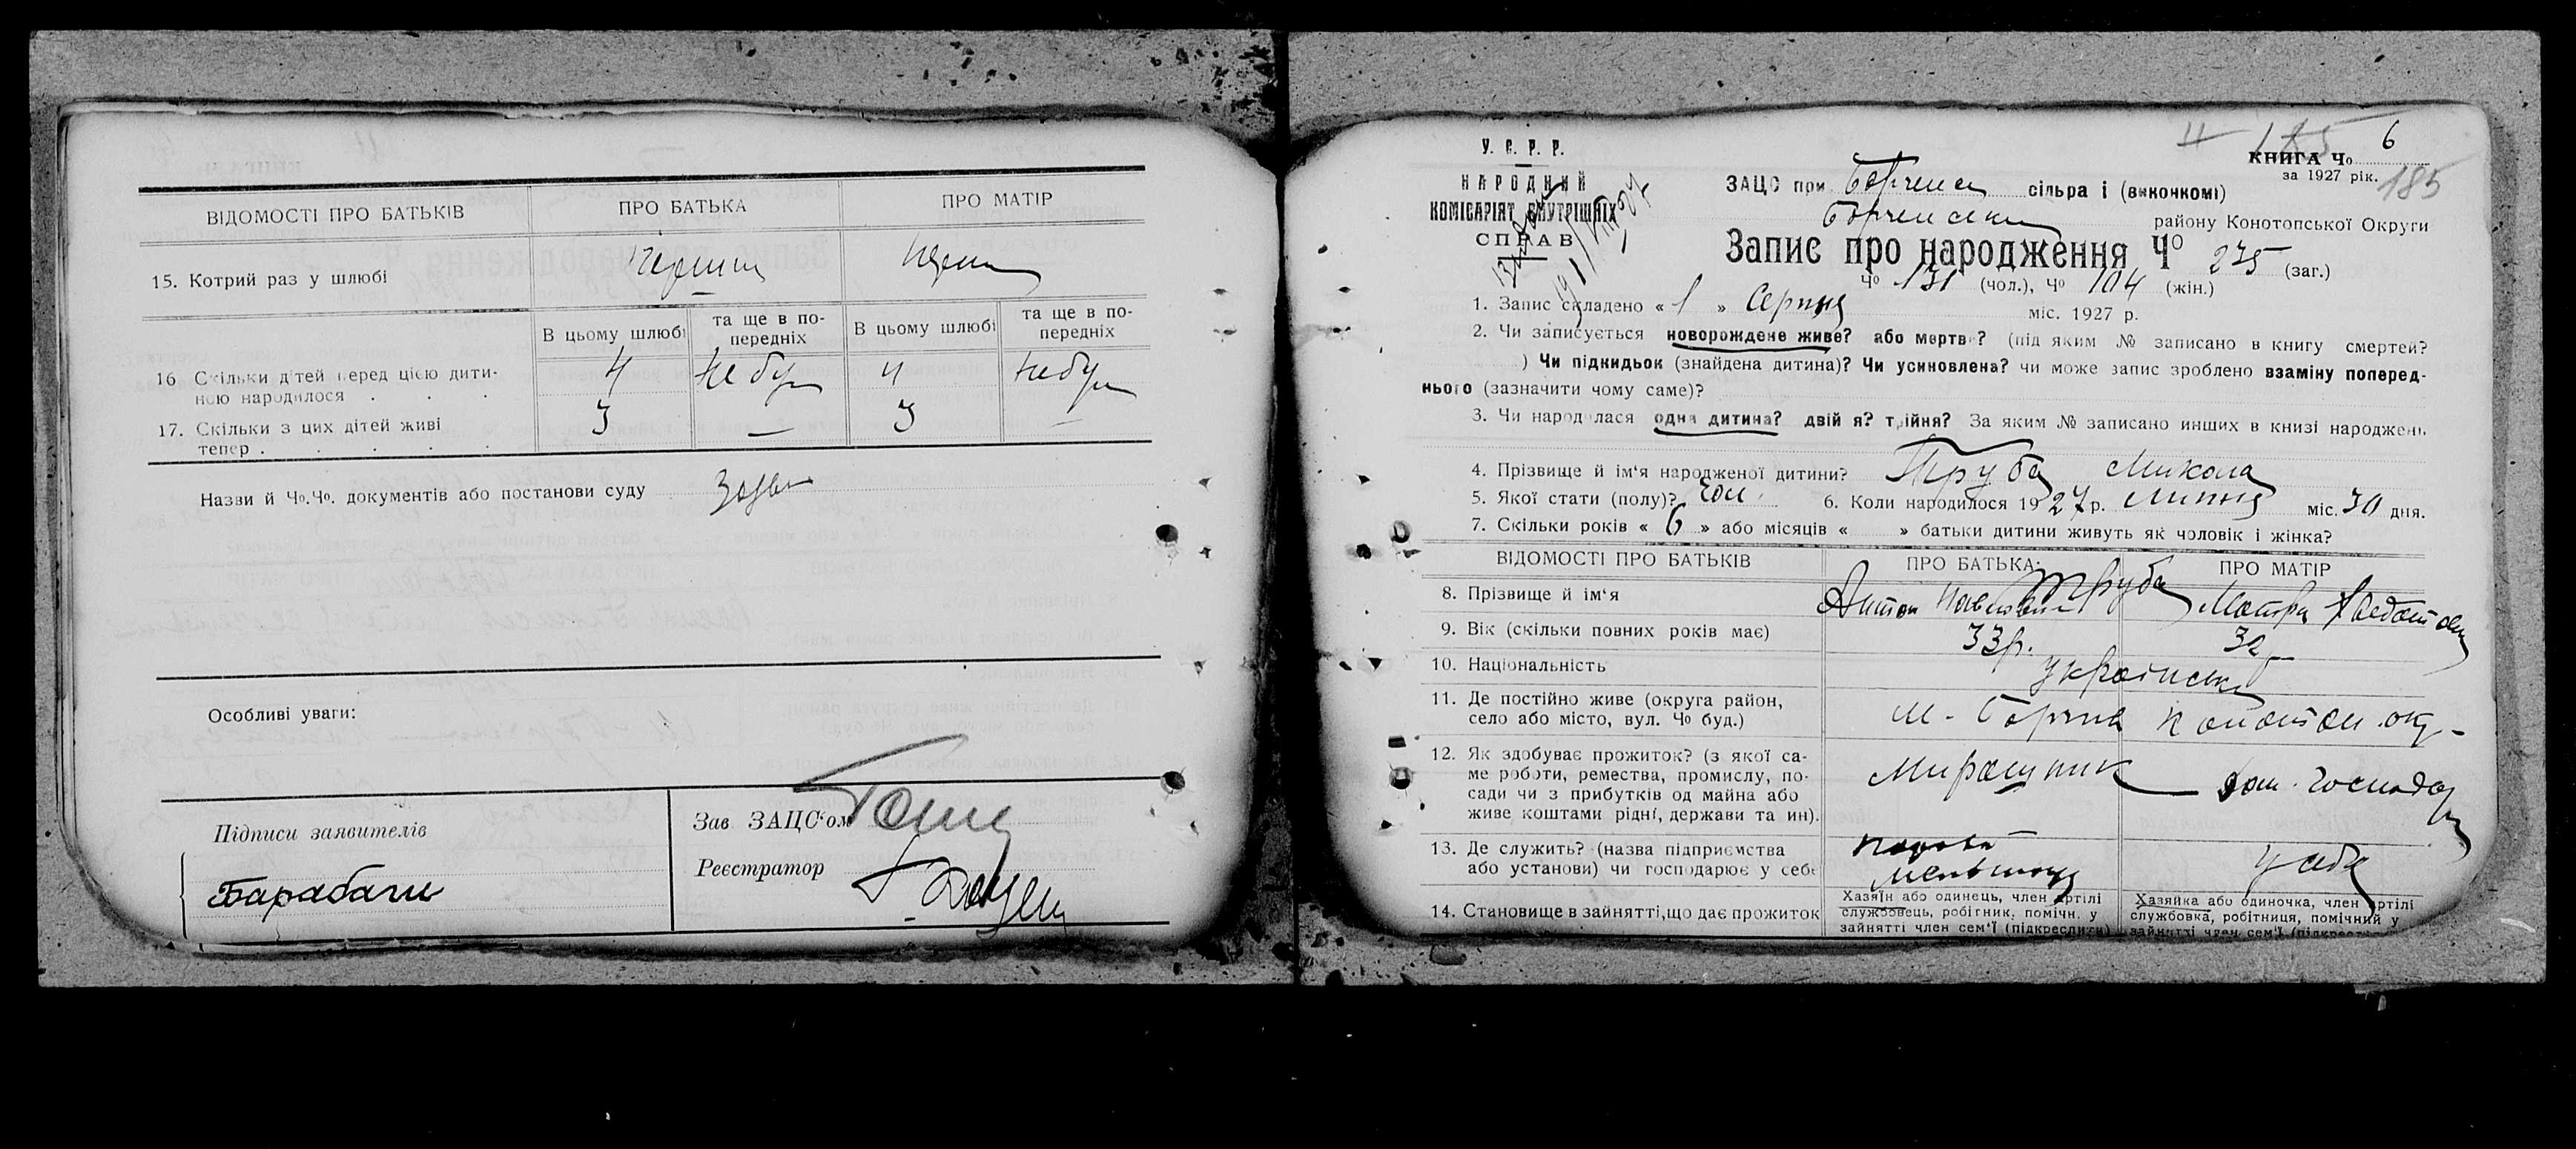 ВІДОМОСТІ ПРО БАТЬКІВ ПРО БАТЬКА ПРО МАТІР
15. Котрий раз у шлюбі
В цьому шлюбі та ще в по-передніх В цьому шлюбі та ще в по-передніх
16 Скільки дітей перед цією дити-
ною народилося . . . 4 не бул 4 не бул
17. Скільки з цих дітей живі
тепер . . . . . 3 — 3 —
Назви й Чо.Чо. документів або постанови суду
Особливі уваги:
Підписи заявителів
Зав ЗАЦС‘ом
Реєстратор
У. С. Р. Р.
НАРОДНИЙ
КОМІСАРІЯТ ВНУТРІШНІХ
СПРАВ
185 6
КНИГА Чо
за 1927 рік. 185
ЗАЦС при Борченск сільра і (виконкомі)
Борченськ району Конотопської Округи
Запис про народження Чо 235 (заг.)
Чо 131 (чол.), Чо 104 (жін.)
1. Запис складено « 1 » Серпня міс. 1927 р.
2. Чи записується новорождене живе? або мертве? (під яким № записано в книгу смертей?
) Чи підкидьок (знайдена дитина)? Чи усиновлена? чи може запис зроблено взаміну поперед-
нього (зазначити чому саме)?
3. Чи народилася одна дитина? двійня? трійня? За яким № записано инших в книзі народжень
4. Прізвище й ім‘я народженої дитини? Труба Микола
5. Якої стати (полу)? чол. 6. Коли народилося 1927 р. Липня міс. 30 дня.
7. Скільки років « 6 » або місяців « » батьки дитини живуть як чоловік і жінка?
ВІДОМОСТІ ПРО БАТЬКІВ ПРО БАТЬКА: ПРО МАТІР
8. Прізвище й ім‘я Труба
Антон Мотря
9. Вік (скільки повних років має) 33р. 32
10. Національність українськ
11. Де постійно живе (округа район,
село або місто, вул. Чо буд.) м. Борзна Конотоп. окр.
12. Як здобуває прожиток? (з якої са-
ме роботи, ремества, промислу, по-
сади чи з прибутків од майна або
живе коштами рідні, держави та ин).
Мирошник дом. господар
13. Де служить? (назва підприємства
або установи) чи господарює у себе у себе
14. Становище в зайнятті, що дає прожиток
Хазяїн або одинець, член артілі
службовець, робітник, помічн. у
зайнятті член сем‘ї (підкреслити)
Хазяйка або одиночка, член артілі
службовка, робітниця, помічний у
зайнятті член сем‘ї